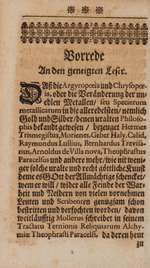 Vorrede
An den geneigten Leser.
Daß die Argyropoeia und Chrysopoe-
ia, oder die Veränderung der un-
edlen Metallen / seu Specierum
metallicarum in die alleredelsten / nemlich
Gold und Silber / denen uralten Philoso-
phis bekandt gewesen / bezeuget Hermes
Trismegistus, Morienes, Geber Haly, Calid,
Raymundus Lullius, Bernhardus Trevisa-
nus, Arnoldus de Villa nova, Theophrastus
Paracelsus und andere mehr / wie mit weni-
ger solche uralte und recht göttliche Kunst
deme es GOtt der Allmächtige schencket /
wem er will / wider alle Feinde der War-
heit und Neidern von vielen vornehmen
Leuten und Scribenten genugsam schon
bestritten und verfochten worden / davon
weitläufftig Mollerus schreibet in seinem
Tractatu Terrionis Reliquiarum Alchy-
miæ Theophrasti Paracelsi, da deren heut
zu